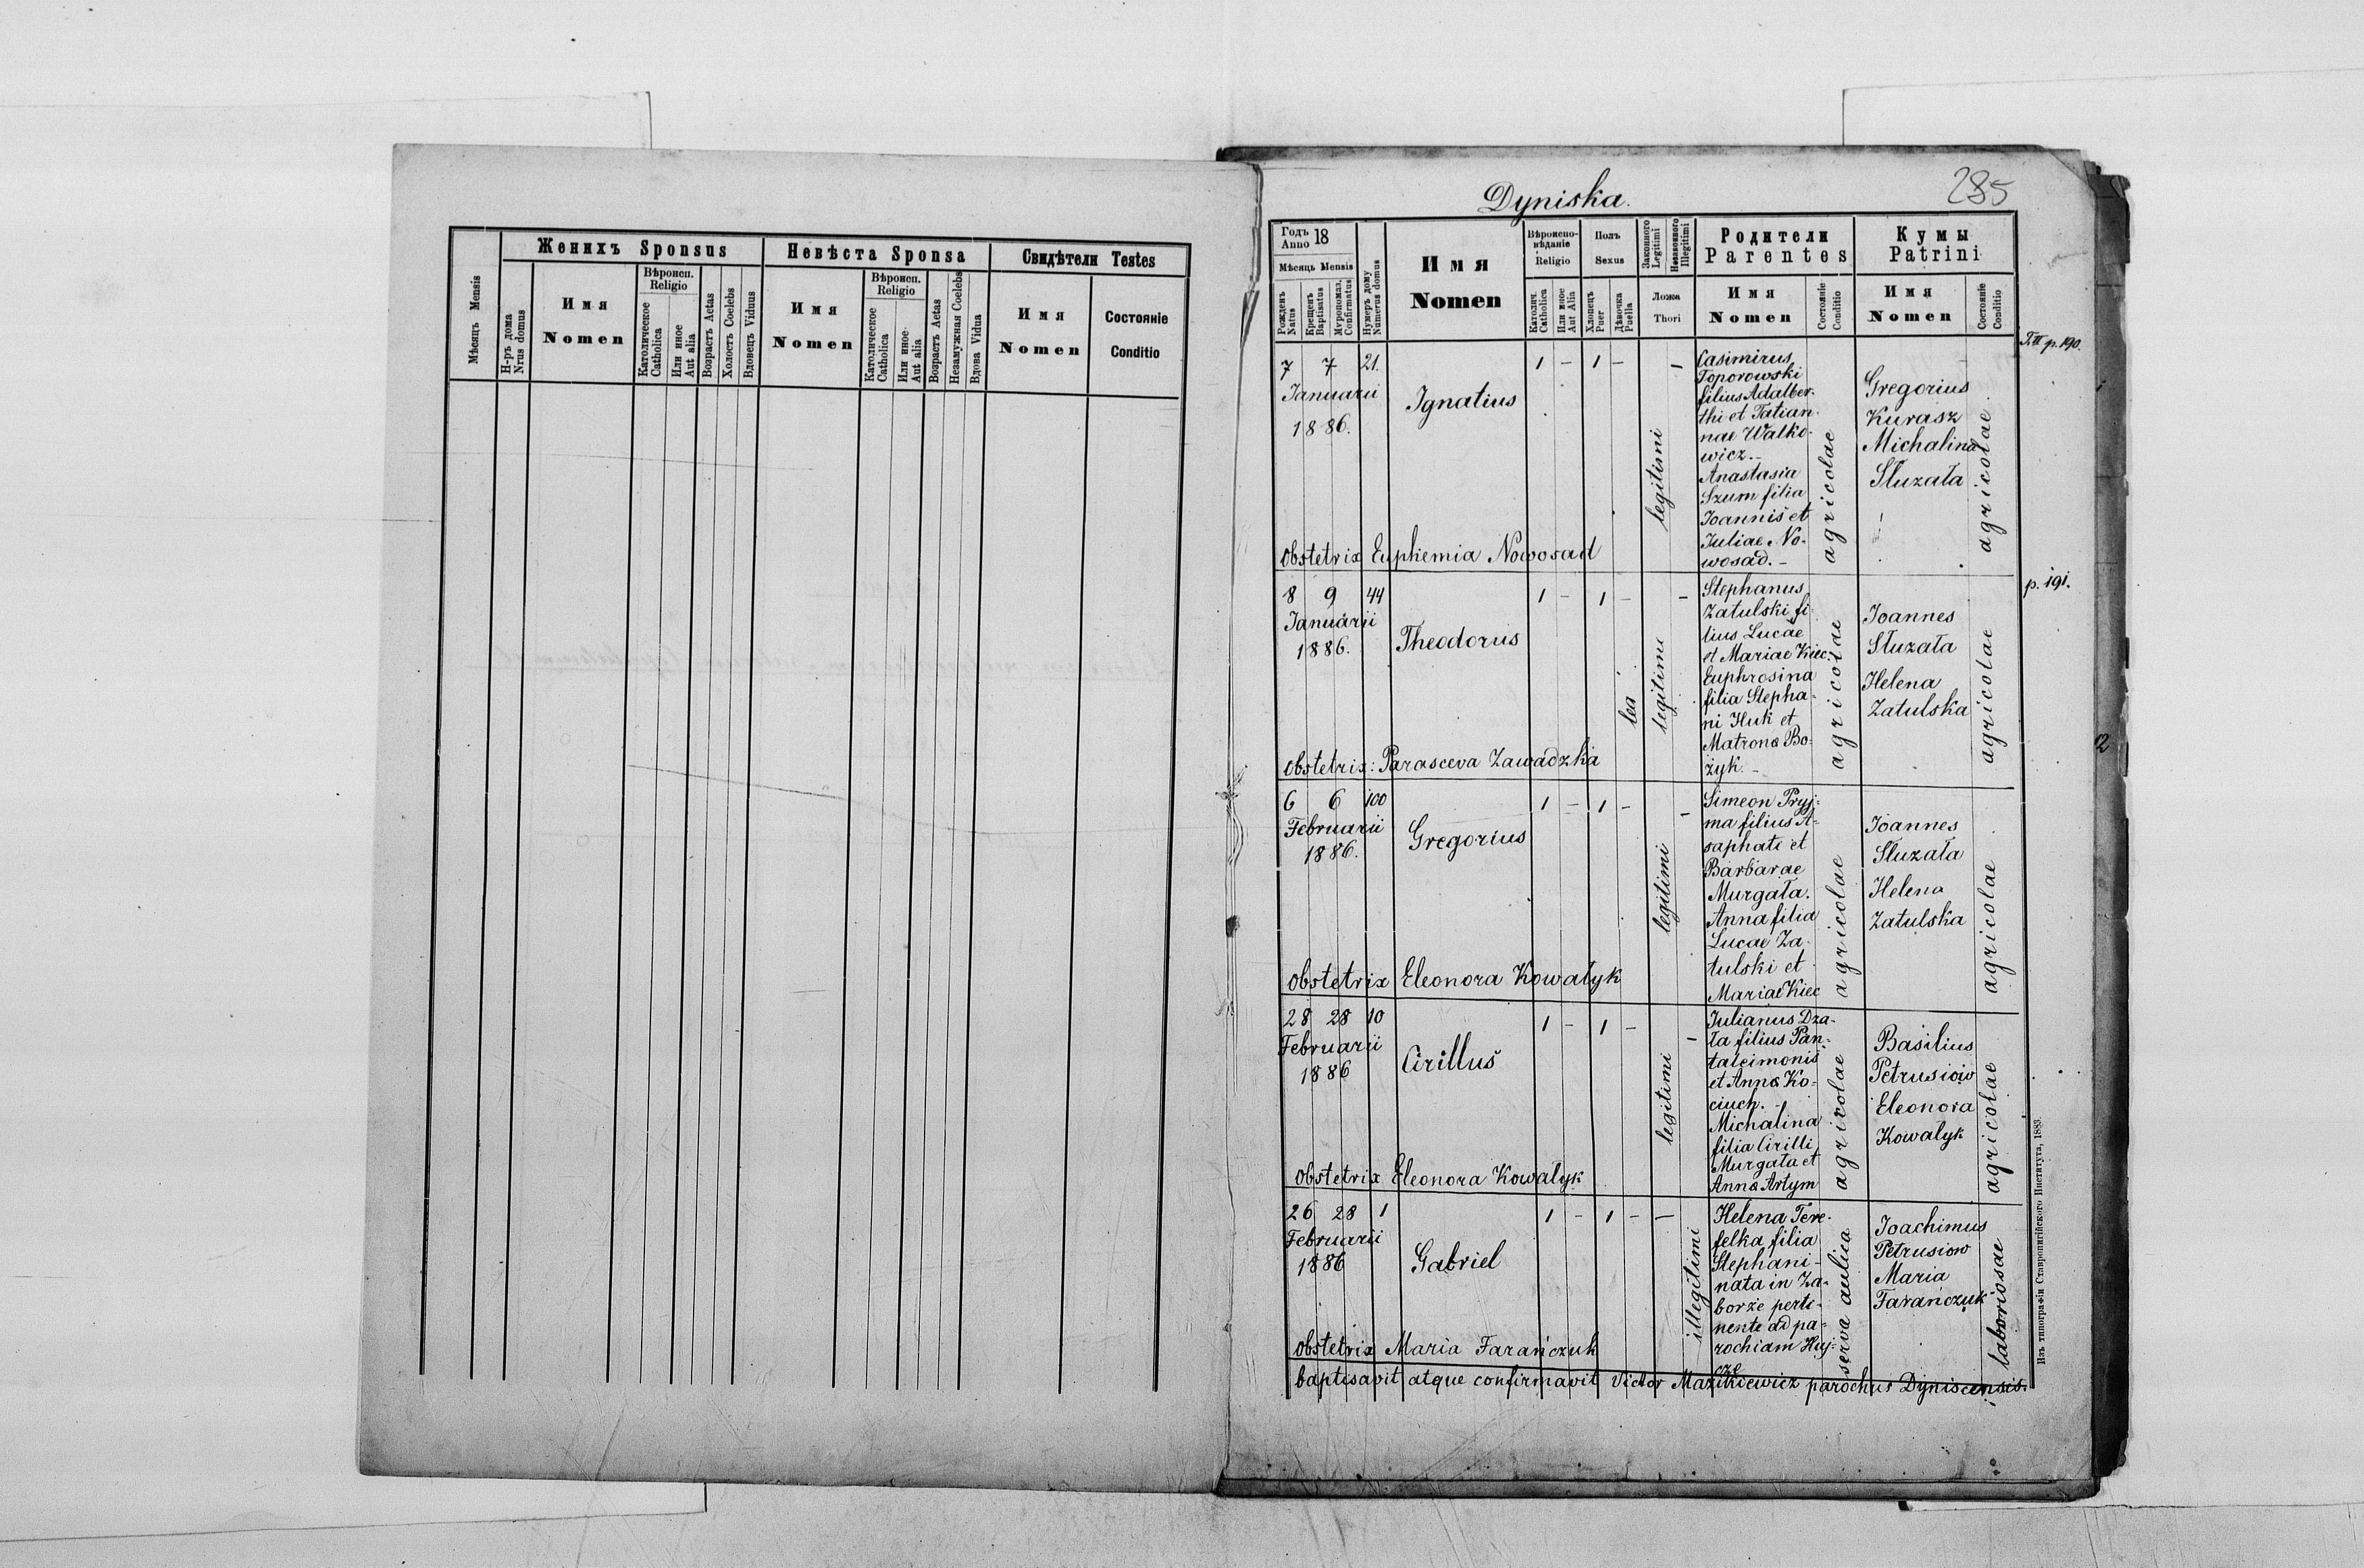 Женихъ Sponsus
Невѣста Sponsa
Свидѣтели Testes
Мѣсяцъ Mensis
Н-ръ дома
Nrus domus
Имя
Nomen
Вѣроисп.
Religio
Католическое
Catholica
Или иное
Aut alia
Возрастъ Aetas
Холостъ Coelebs
Вдовецъ Viduus
Имя
Nomen
Вѣроисп.
Religio
Католическое
Catholica
Или иное
Aut alia
Возрастъ Aetas
Незамужная Coelebs
Вдова Vidua
Имя
Nomen
Состояніе
Conditio
Dyniska.
285
Годъ
Anno 18
Мѣсяцъ Mensis
Рожденъ
Natus
Крещенъ
Baptisatus
Мѵропомаз.
Confirmatus
Нумеръ дому
Numerus domus
Имя
Nomen
Вѣроиспо-
вѣданіе
Religio
Католич.
Catholica
Или иное
Aut Alia
Полъ
Sexus
Хлопецъ
Puer
Дѣвочка
Puella
Законного
Legitimi
Незаконного
Illegitimi
Ложа
Thori
Родители
Parentes
Имя
Nomen
Состояніе
Conditio
Кумы
Patrini
Имя
Nomen
Состояніе
Conditio
T.III p.190.
7 7 21.
Januarii
1886.
Ignatius
1 - 1 - -
legitimi
Casimirus
Toporowski
filius Adalber-
thi et Tatian-
nae Walko-
wicz.-
Anastasia
Szum filia
Joannis et
Juliae No-
wosad.-
agricolae
Gregorius
Kurasz
Michalina
Słuzała
agricolae
Obstetrix Euphemia Nowosad
p. 191.
8 9 44
Januarii
1886.
Theodorus
1 - 1 - -
legitimi
Stephanus
Zatulski fi-
lius Lucae
et Mariae Kiec.
Euphrosina
filia Stepha-
ni Huk et
Matronæ Bo-
żyk.-
agricolae
Joannes
Słuzała
Helena
Zatulska
agricolae
Obstetrix: Parasceva Zawadzka
6 6 100
Februarii
1886.
Gregorius
1 - 1 - -
legitimi
Simeon Pryj-
ma filius A-
saphati et
Barbarae
Murgała.
Anna filia
Lucae Za-
tulski et
Mariae Kiec
agricolae
Joannes
Słuzała
Helena
Zatulska
agricolae
Obstetrix Eleonora Kowałyk
28 28 10
Februarii
1886
Cirillus
1 - 1 - -
legitimi
Julianus Dza-
ła filius Pan-
taleimonis
et Annæ Ko-
ciuch.-
Michalina
filia Cirilli
Murgała et
Annæ Artym
agricolae
Basilius
Petrusiow
Eleonora
Kowalyk
agricolae
Obstetrix Eleonora Kowałyk
26 28 1
Februarii
1886
Gabriel
1 - 1 - -
illegitimi
Helena Tere-
felka filia
Stephani-
nata in Za-
borze perti-
nente ad pa-
rochiam Huj-
cze
serva aulica
Joachimus
Petrusiow
Maria
Farańczuk
laboriosae
Obstetrix Maria Farańczuk
baptisavit atque confirmavit Victor Mazikiewicz parochus Dyniscensis.
Изъ типографіи Ставропигійского Института, 1883.
2